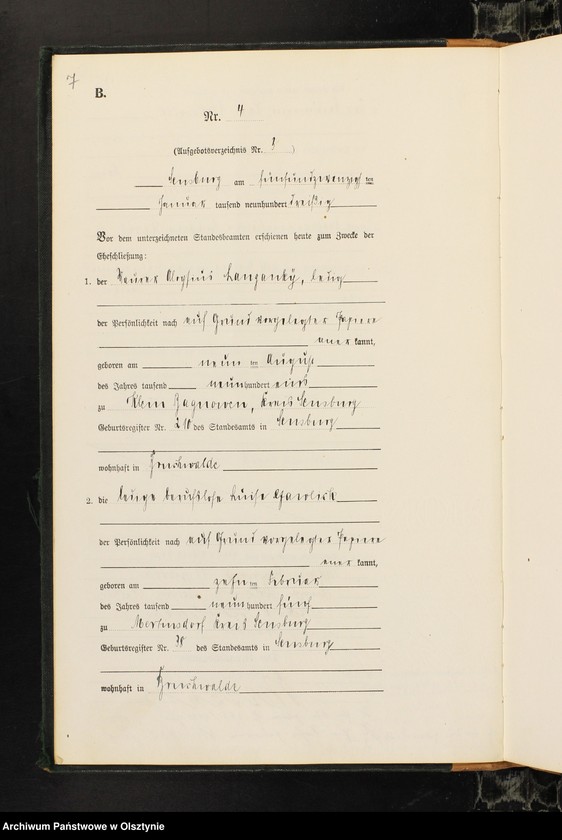 7
B.
Nr. 4
(Aufgebotsverzeichnis Nr. )
Sensburg am fünfundzwanzigsten
Januar tausend neunhundert dreißig
Vor dem unterzeichneten Standesbeamten erschienen heute zum Zwecke der
Eheschließung:
1. der Maurer Aloysius Langanky, ledig
der Persönlichkeit nach auf Grund vorgelegter Papiere
anerkannt,
geboren am neunten August
des Jahres tausend neunhundert eins
zu Klein Jagnowen, Kreis Sensburg
Geburtsregister Nr. 210 des Standesamts in Sensburg
wohnhaft in
2. die ledige berufslose Luise
der Persönlichkeit nach auf Grund vorgelegter Papiere
anerkannt,
geboren am zehnten Februar
des Jahres tausend neunhundert fünf
zu Mertinsdorf Kreis Sensburg
Geburtsregister Nr. des Standesamts in Sensburg
wohnhaft in
Archiwum Państwowe w Olsztynie